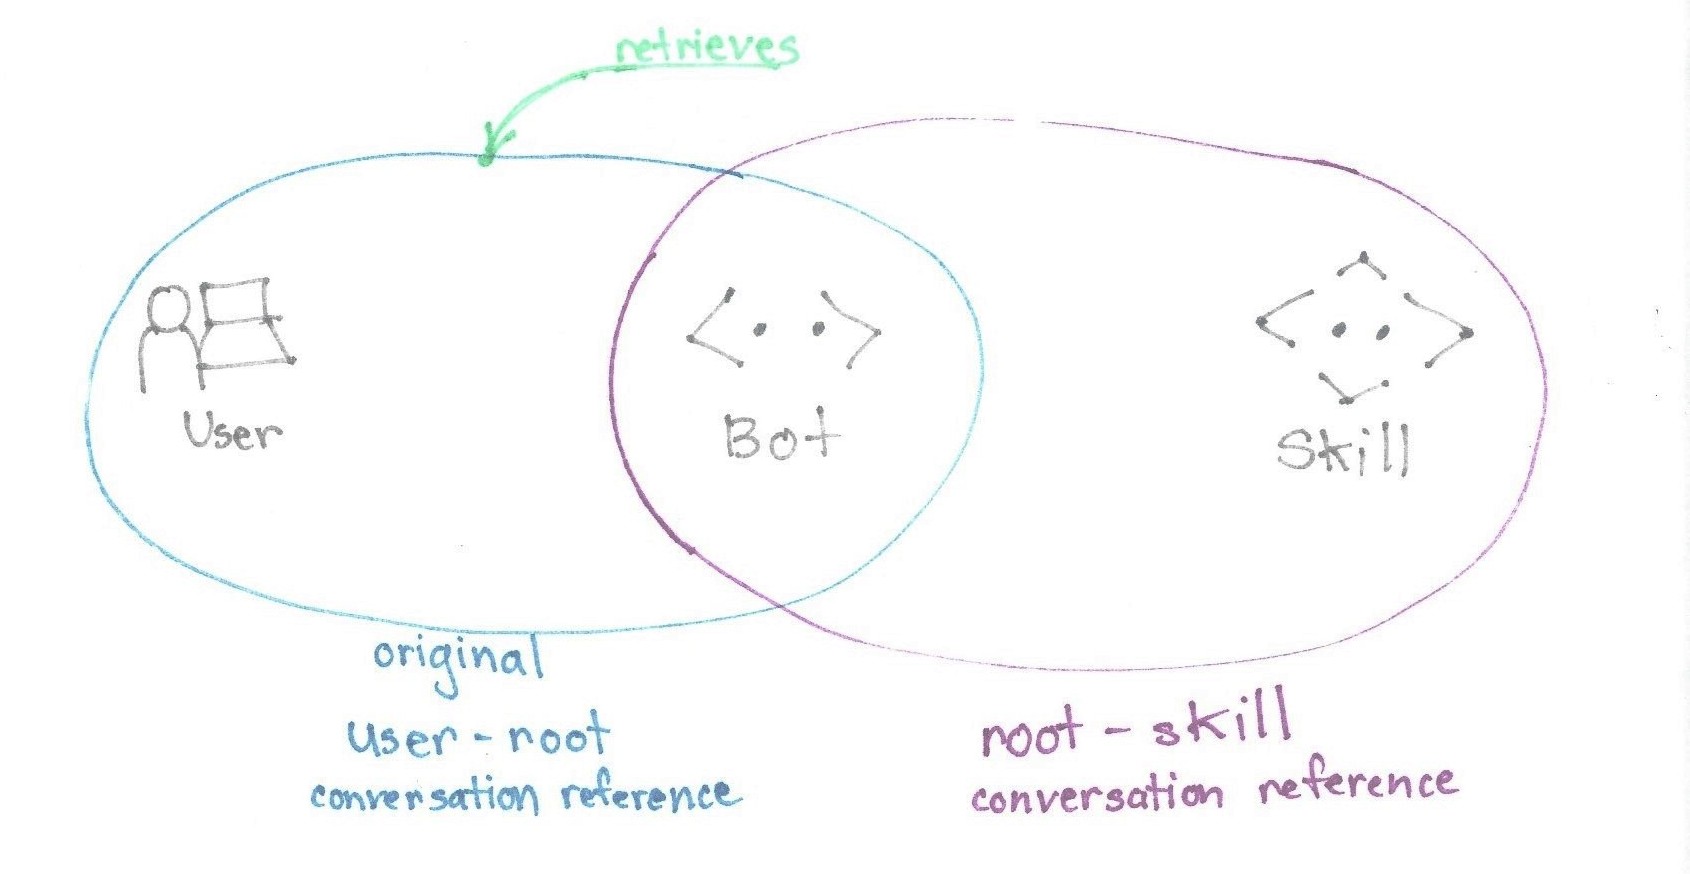 retrieves
User
Bot
Skill
original
user - root
conversation reference
root - skill
conversation reference